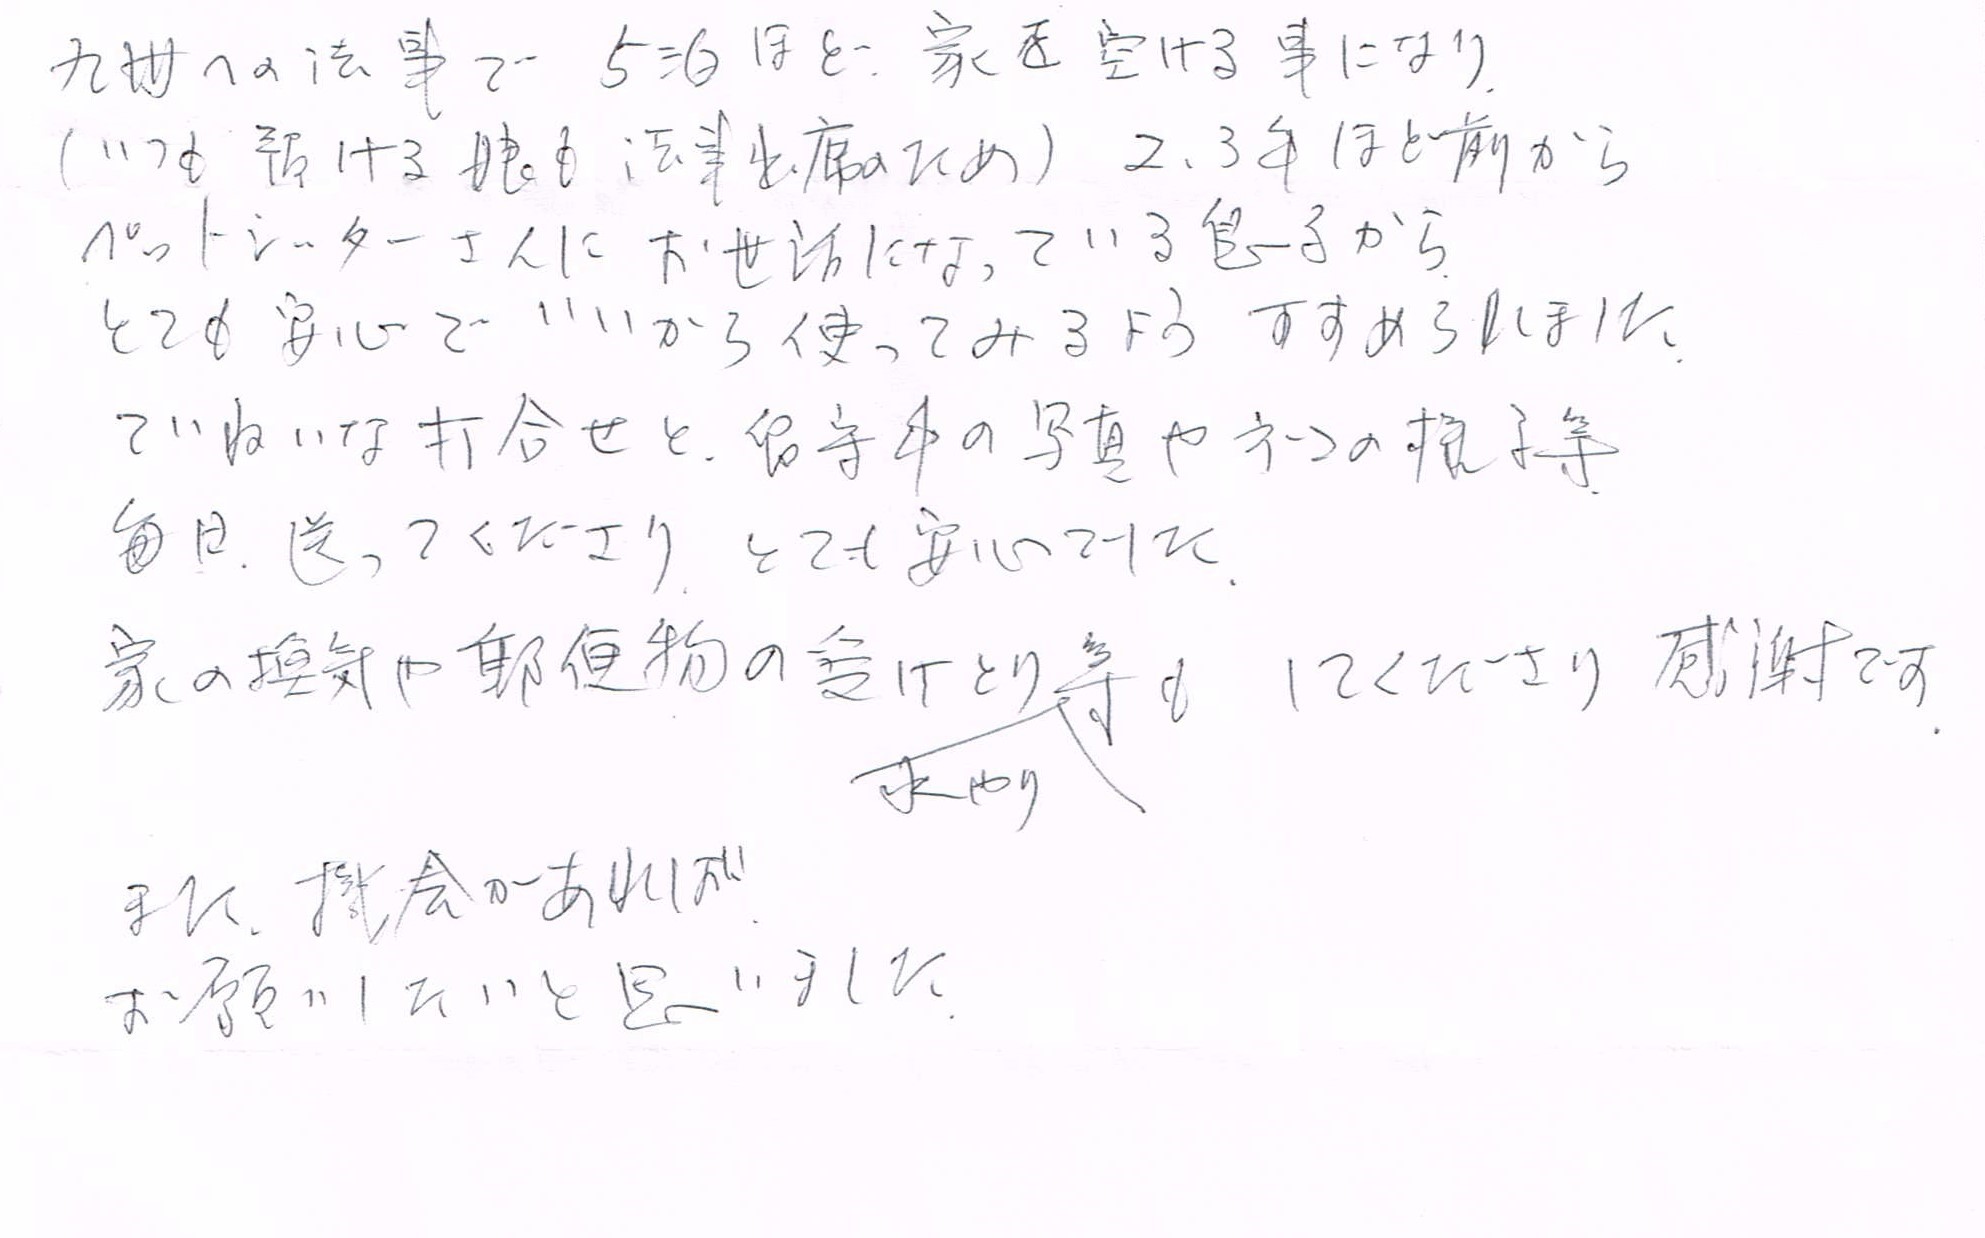 九州への法事で 5泊ほど、家を空ける事になり、
(いつも預ける娘も法事出席のため) 2、3年ほど前から
ペットシッターさんに お世話になっている息子から、
とても安心で いいから使ってみるよう すすめられました。
ていねいな打合せと、留守中の写真やネコの様子等
毎日、送ってくださり、とても安心でした。
家の換気や郵便物の受けとり等も してくださり 感謝です。
水やり
また、機会があれば、
お願いしたいと思いました。